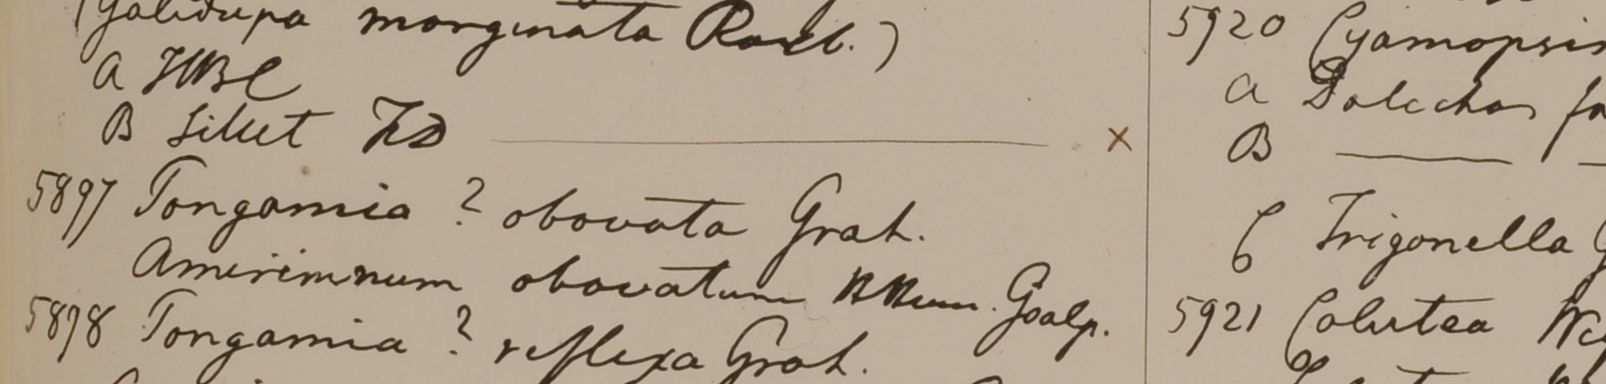 (Galidupa marginata Roxb.)
A HBC
B Silhet FD
5897 Pongamia ? obovata Grah.
Amerimnum obovatum Goalp.
5898 Pongamia ? reflexa Grah.
5920 Cyamopsis
A Dolichos fa
B
C Trigonella G
5921 Colutea